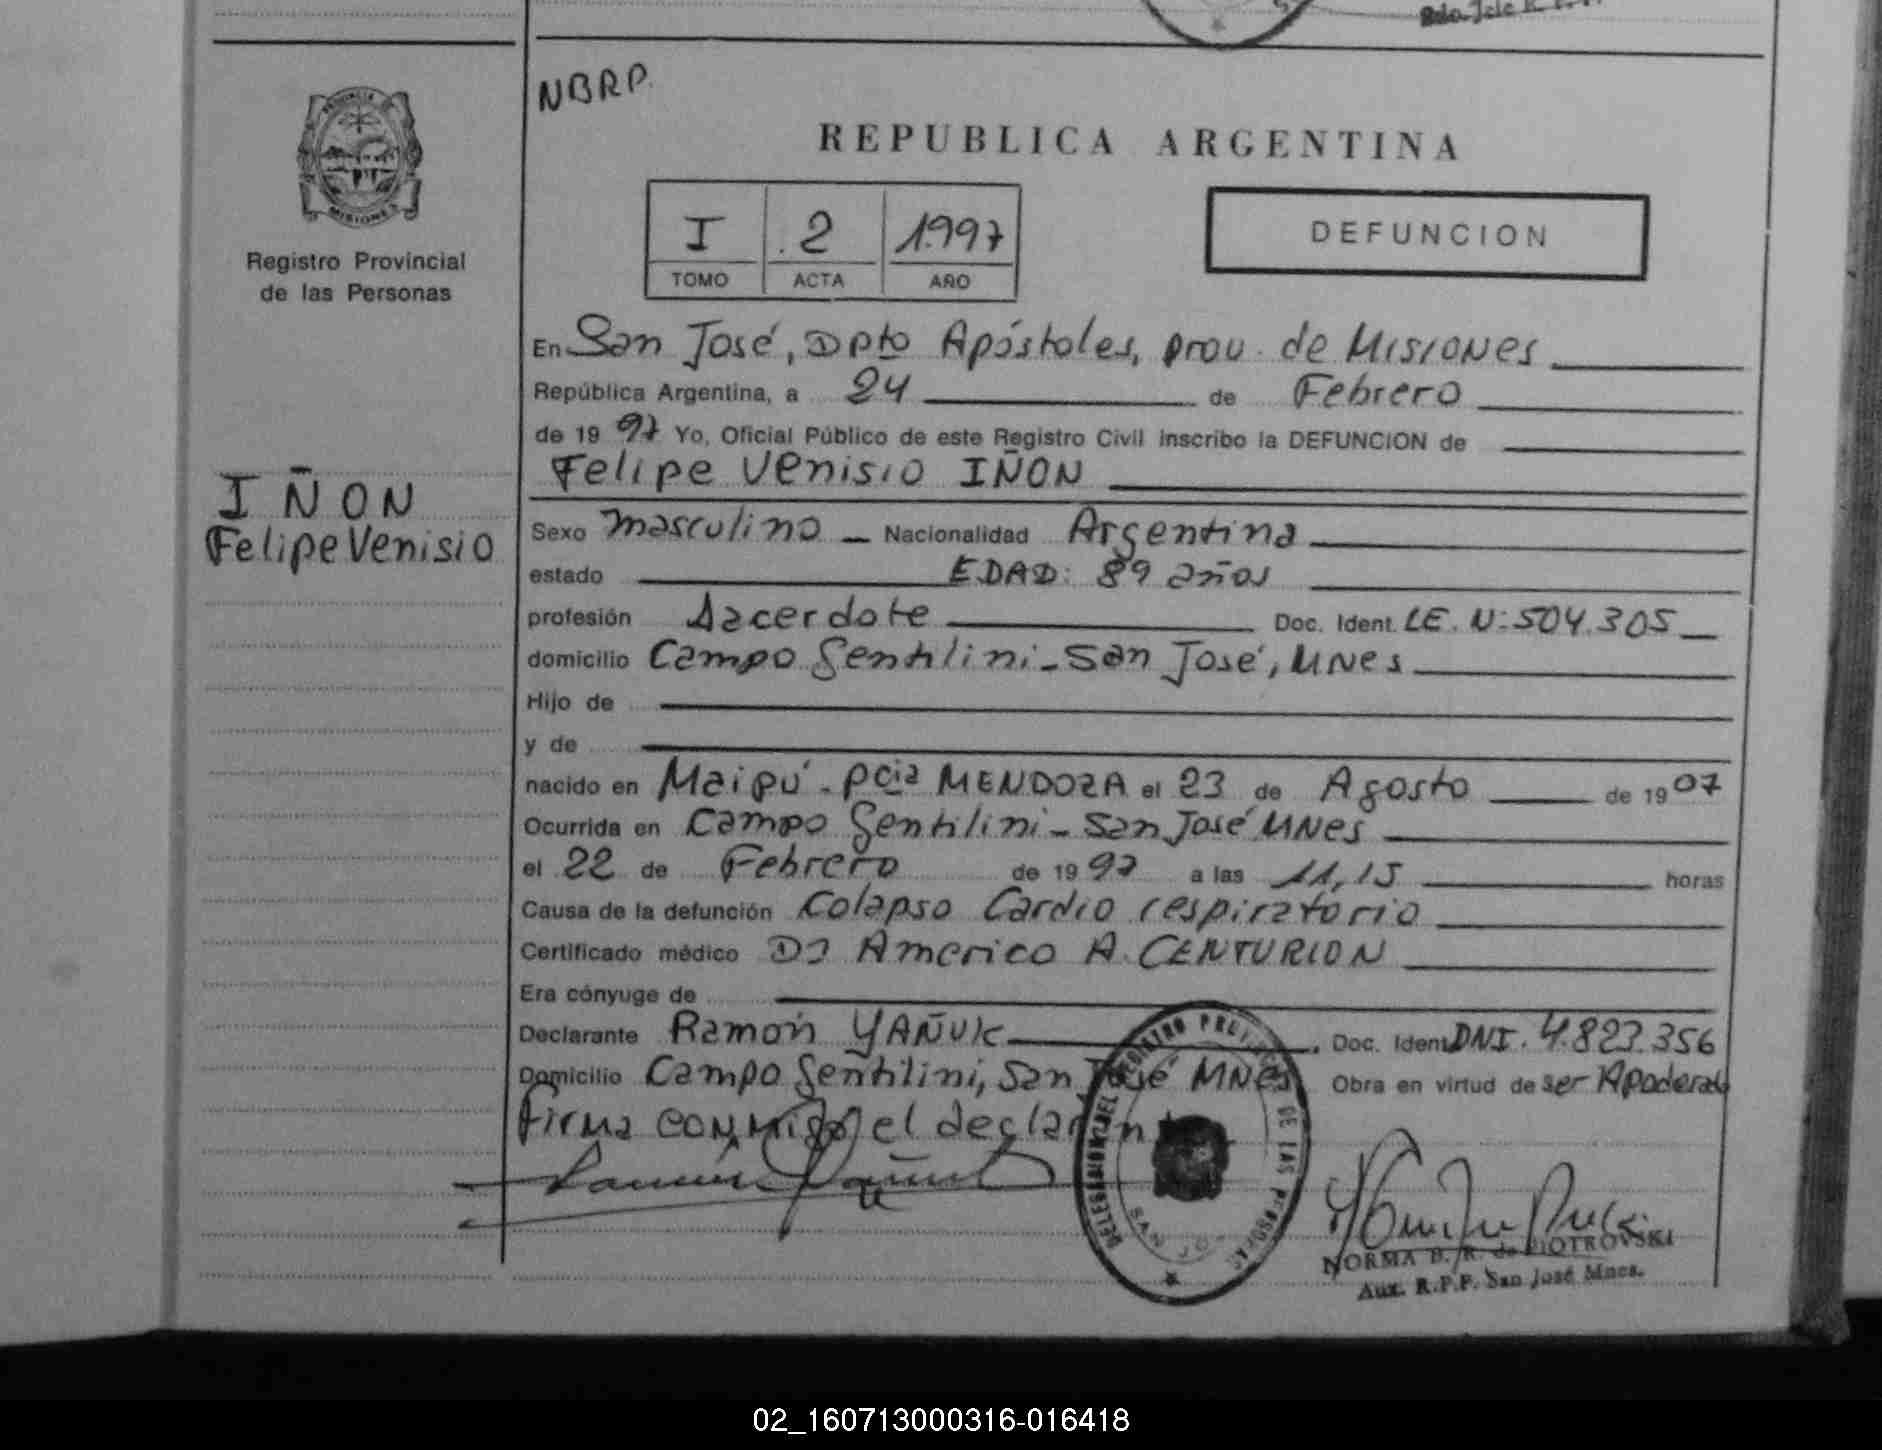 NBRP.
REPUBLICA ARGENTINA
PROVINCIA DE
MISIONES
Registro Provincial
de las Personas
I 2 1.997
TOMO ACTA AÑO
DEFUNCION
En San José, Dpto Apóstoles, prov. de MISIONES
República Argentina, a 24 de Febrero
de 1997 Yo, Oficial Público de este Registro Civil inscribo la DEFUNCION de
Felipe Venisio IÑON
IÑON
Felipe Venisio
Sexo masculino Nacionalidad Argentina
estado EDAD: 89 años
profesión Sacerdote Doc. Ident. LE. N: 504.305
domicilio Campo Gentilini - San José, MNes
Hijo de
y de
nacido en Maipú - Pcia MENDOZA el 23 de Agosto de 1907
Ocurrida en Campo Gentilini - San José MNes
el 22 de Febrero de 1997 a las 11,15 horas
Causa de la defunción Colapso Cardio respiratorio
Certificado médico Dr Americo A. CENTURION
Era cónyuge de
Declarante Ramón YAÑUK Doc. Ident DNI. 4.823.356
Domicilio Campo Gentilini, San José MNes Obra en virtud de ser Apoderado
Firma conmigo el declarante
DELEGACION DEL REGISTRO PROVINCIAL DE LAS PERSONAS
SAN JOSE
NORMA B. R. de PIOTROVSKI
Aux. R.P.P. San José Mnes.
02_160713000316-016418